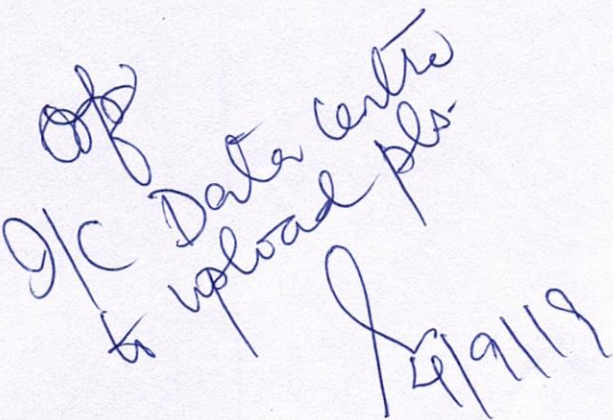 I/C Data Centre
to upload pls.
4/9/19